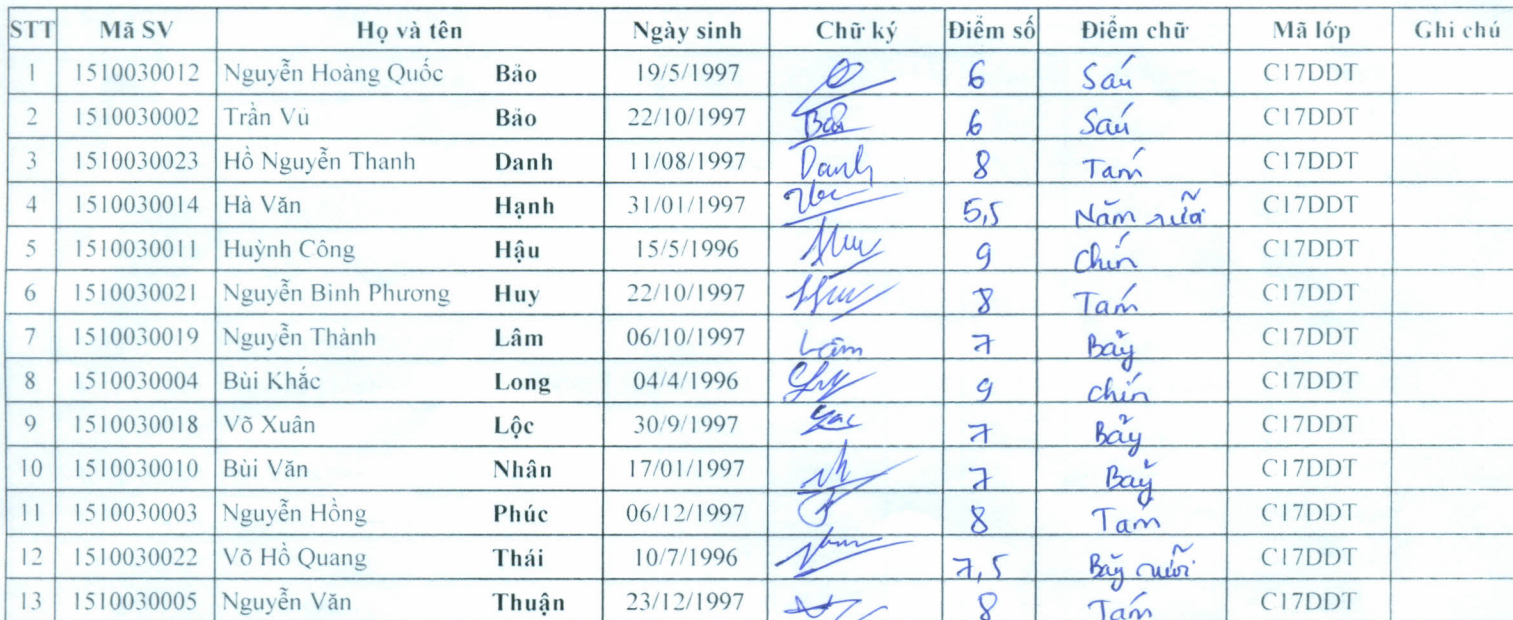 STT Mã SV Họ và tên Ngày sinh Chữ ký Điểm số Điểm chữ Mã lớp Ghi chú
1 1510030012 Nguyễn Hoàng Quốc Bảo 19/5/1997 6 Sáu C17DDT
2 1510030002 Trần Vũ Bảo 22/10/1997 Bảo 6 Sáu C17DDT
3 1510030023 Hồ Nguyễn Thanh Danh 11/08/1997 Danh 8 Tám C17DDT
4 1510030014 Hà Văn Hạnh 31/01/1997 5,5 Năm rưỡi C17DDT
5 1510030011 Huỳnh Công Hậu 15/5/1996 9 Chín C17DDT
6 1510030021 Nguyễn Bình Phương Huy 22/10/1997 8 Tám C17DDT
7 1510030019 Nguyễn Thành Lâm 06/10/1997 Lâm 7 Bảy C17DDT
8 1510030004 Bùi Khắc Long 04/4/1996 9 Chín C17DDT
9 1510030018 Võ Xuân Lộc 30/9/1997 7 Bảy C17DDT
10 1510030010 Bùi Văn Nhân 17/01/1997 7 Bảy C17DDT
11 1510030003 Nguyễn Hồng Phúc 06/12/1997 8 Tám C17DDT
12 1510030022 Võ Hồ Quang Thái 10/7/1996 7,5 Bảy rưỡi C17DDT
13 1510030005 Nguyễn Văn Thuận 23/12/1997 8 Tám C17DDT